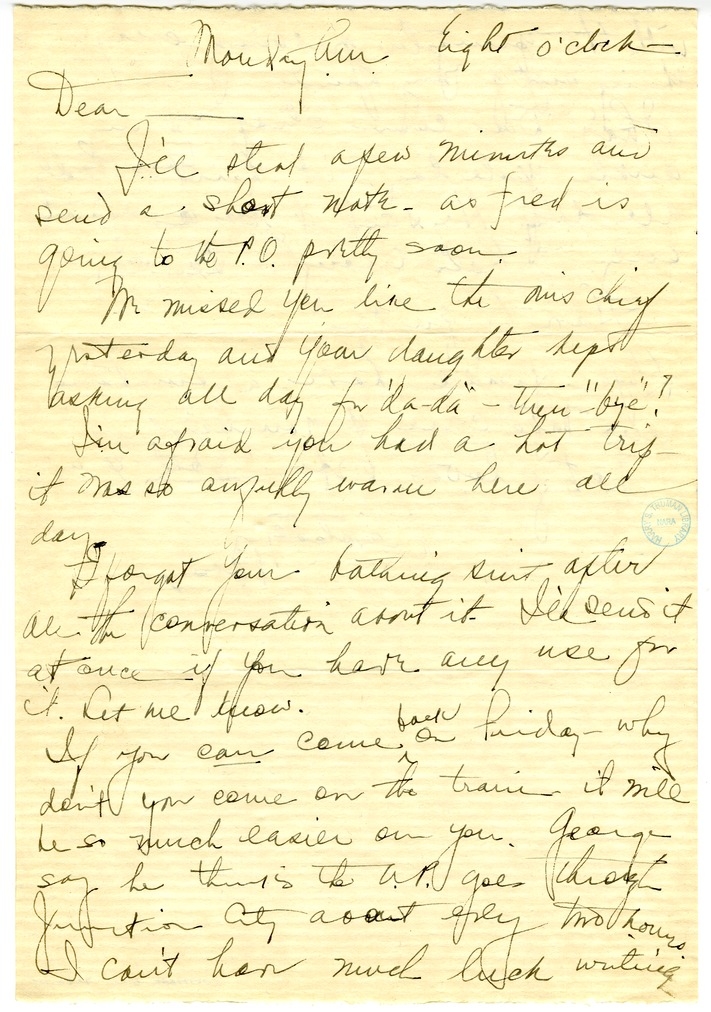 Monday P.M. Eight o'clock —
Dear ———
I'll steal a few minutes and
send a short note - as Fred is
going to the P.O. pretty soon.
We missed you like the mischief
yesterday and your daughter kept
asking all day for "da-da" - then "bye"?
I'm afraid you had a hot trip -
it was so awfully warm here all
day.
I forgot your bathing suit after
all the conversation about it. I'll send it
at once if you have any use for
it. Let me know.
If you can come back on Friday - why
don't you come on the train - it will
be so much easier on you. George
say he thinks the U.P. goes through
Junction City about every two hours.
I can't have much luck writing
HARRY S. TRUMAN LIBRARY
NARA